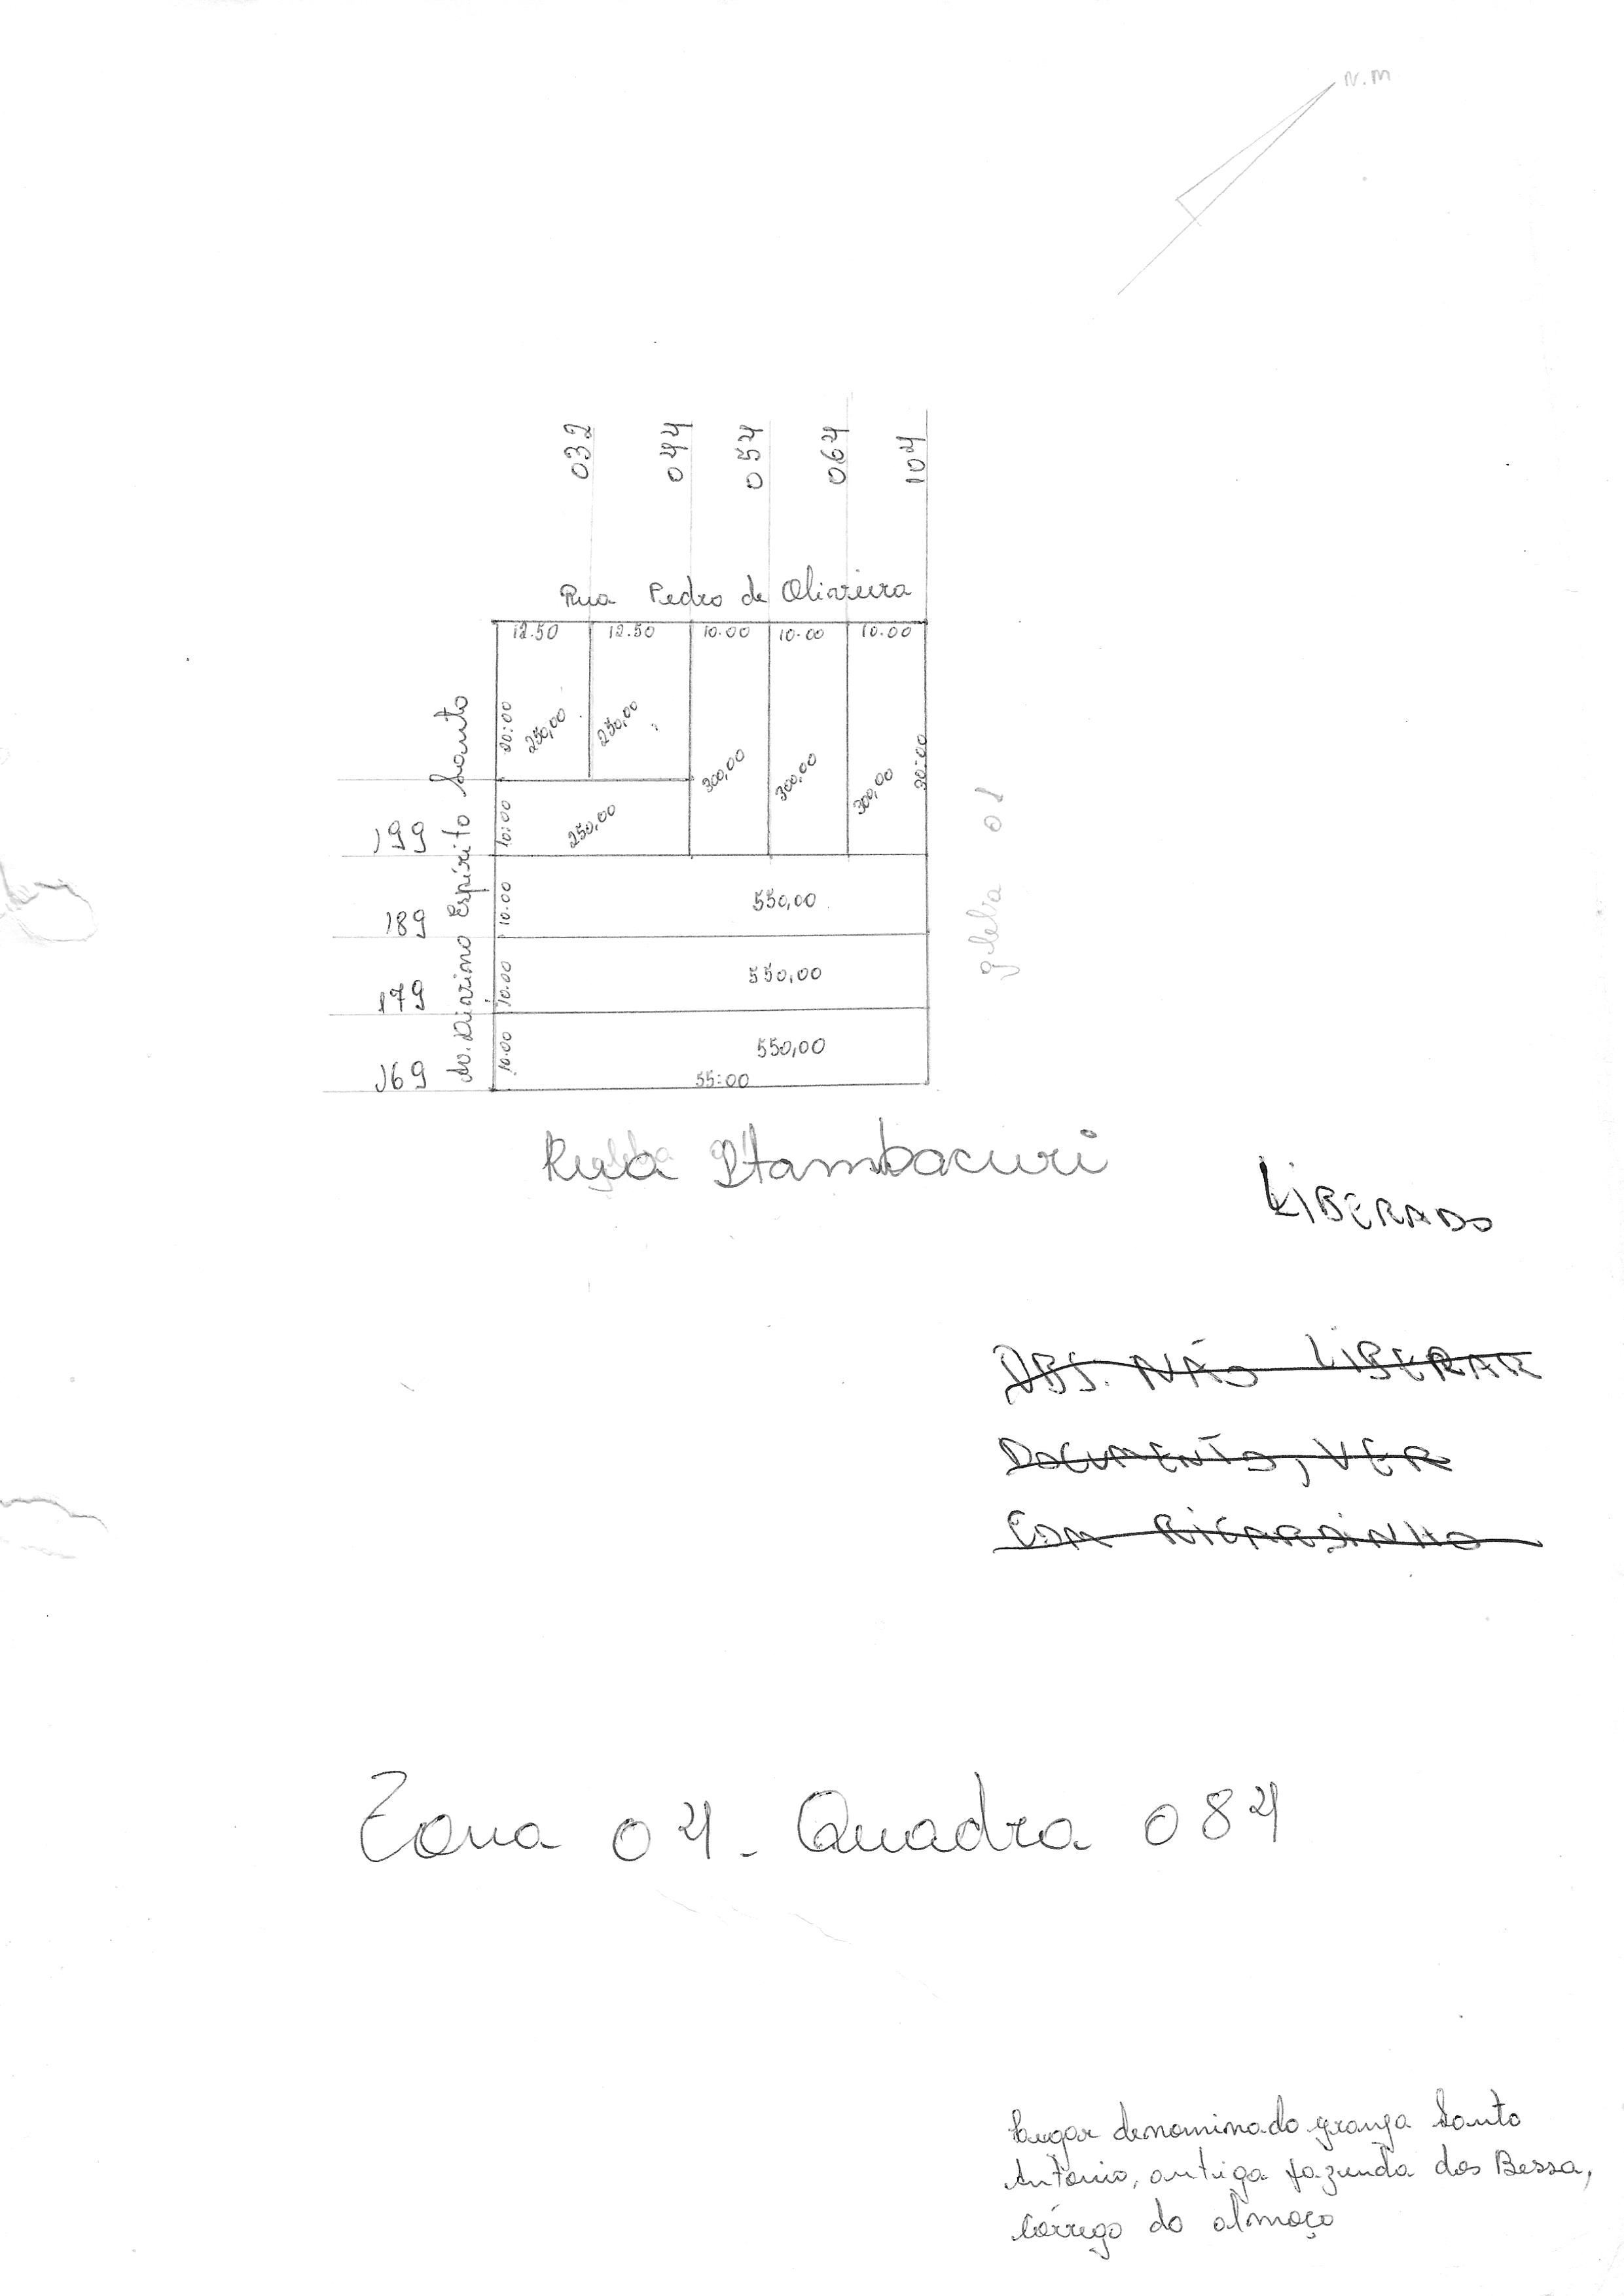 N.M
032 044 054 064 104
Rua Pedro de Oliveira
12.50 12.50 10.00 10.00 10.00
Av. Divino Espírito Santo
20:00 250,00 250,00
300,00 300,00 300,00 30:00
199 10:00 250,00
gleba 01
189 10.00 550,00
179 10.00 550,00
169 10.00 550,00
55:00
Rua Itambacuri
gleba
LIBERADO
OBS. NÃO LIBERAR
DOCUMENTO, VER
COM RICARDINHO
Zona 04 - Quadra 084
lugar denominado granja Santo
Antonio, antiga fazenda dos Bessa,
Córrego do almoço